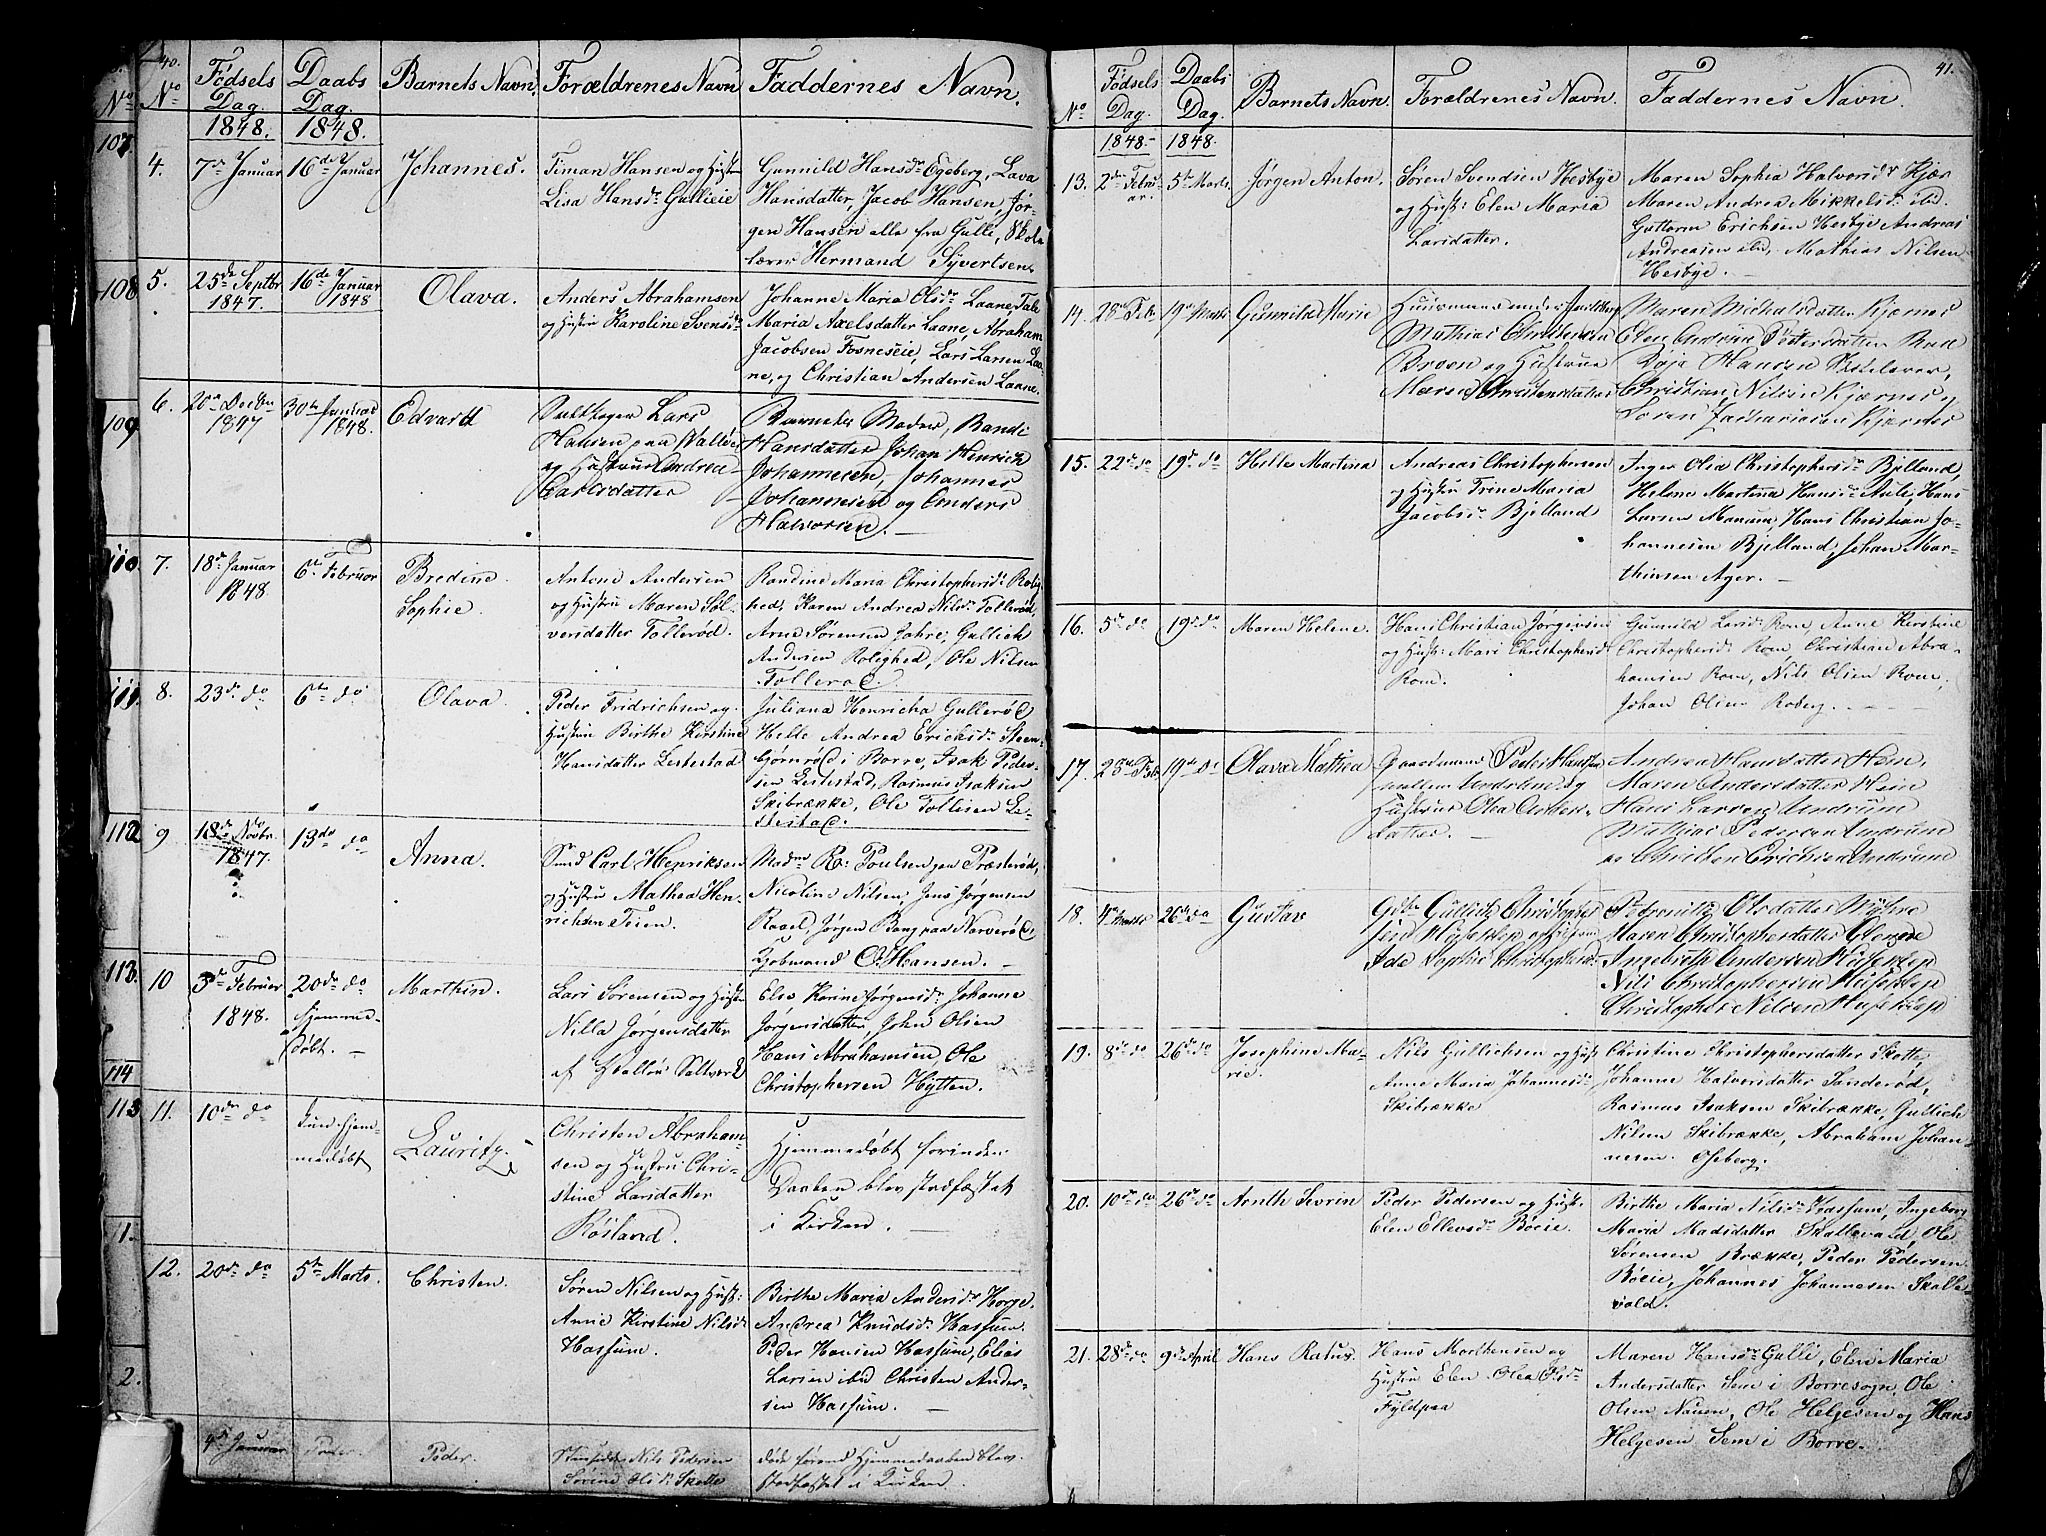 40.
No
Fødsels Dag.
Daabs Dag.
Barnets Navn.
Forældrenes Navn
Faddernes Navn.
1848. 1848.
107.
4.
7de Januar
16de Januar
Johannes.
Timan Hansen og Hustru
Lisa Hansdr. Gullieie
Gunnild Hansdr Egeberg, Lava
Hansdatter, Jacob Hansen, Jør-
gen Hansen alle fra Gulle, Skole
lærer Hermand Syvertsen.
108
5.
25de Septbr 1847.
16de Januar 1848
Olava.
Anders Abrahamsen
og Hustru Karoline Svensdr
Johanne Maria Olsdr Laane, Tale
Maria Axelsdatter Laane, Abraham
Jacobsen Fosneseie, Lars Larsen Laa-
ne, og Christian Andersen Laane.
109
6.
20de Decbr 1847
30te Januar 1848.
Edvard
Lars
Hansen paa Valløe
og Hustrue Andrea
Carlsdatter
Barnets Moder, Randi
Hansdatter Johan Henrich
Johannesen, Johannes
Johannesen og Anders
Halvorsen.
110
7.
18de Januar 1848
6te Februar
Bredine
Sophie.
Anton Andersen
og Hustru Maren Søl-
versdatter Tollerød.
Randine Maria Christophersdr. Rolig-
hed, Karen Andrea Nilsdr. Tollerød,
Arne Sørensen Jahre, Gullich
Andersen Rolighed, Ole Nilsen
Tollerød.
111
8.
23de do
6te do
Olava.
Peder Fridrichsen og
Hustru Birthe Kirstine
Hansdatter Lestestad
Juliana Henricha Gullerød
Helle Andrea Ericksdr. Steen-
bjørnrød i Borre, Isak Peder-
sen Lestestad, Rasmus Isaksen
Skibrække, Ole Tollisen Le-
stestad.
112
9
18de Novbr. 1847.
13de do
Anna.
Carl Henriksen
og Hustru Mathea Hen-
richsen Teien.
Madme Ro: Poulsen paa Præsterød,
Nicoline Nilsen, Jens Jørgensen
Rael, Jørgen Bang paa Narverød,
Kjøbmand O. Hansen.
113.
10
3de Februar 1848.
20de do
hjemme-
døbt.
Marthin.
Lars Sørensen og Hustru
Nilla Jørgensdatter
af Valløe Saltverk
Else Karine Jørgensdr. Johanne
Jørgensdatter, John Olsen
Hans Abrahamsen Ole
Christophersen Hytten.
114
113
11.
10de do
kun hjem-
medøbt
Lauritz.
Christen Abraham-
sen og Hustru Chri-
stine Larsdatter
Røsland.
Hjemmedøbt forinden
Daaben blev stadfæstet
i Kirken.
1.
12.
20de do
5te Marts.
Christen.
Søren Nilsen og Hust:
Anne Kirstine Nilsdr
Hassum.
Birthe Maria Andersdr Horge.
Andrea Knudsdr. Hassum.
Peder Hansen Hassum, Elias
Larsen ibid Christen Ander-
sen Hassum.
2.
4de Januar
Peder.
Nils Pedersen
Olsdr. Skotte
døde førend Hjemmedaaben blev
stadfæstet i Kirken.
41.
No
Fødsels Dag.
Daabs Dag.
Barnets Navn.
Forældrenes Navn.
Faddernes Navn.
1848. 1848.
13.
2den Febru-
ar.
5te Marts.
Jørgen Anton.
Søren Svendsen Hesbye
og Hust: Elen Maria
Larsdatter.
Maren Sophia Halvorsdr Kjær
Maren Andrea Mikkelsdr. ibd.
Guttorm Erichsen Hesbye Andreas
Andreasen ibd, Mathias Nilsen
Hesbye.
14.
28de Feb.
19de Marts
Gunnild Marie
Huusmand under
Mathias Christensen
Broen og Hustrue
Maren Christensdatter
Maren Michalsdatter Kjærnes
Elen Andrine Pedersdatter
Hansen
Christian Nilsen Kjærnes og
Søren Zachariasen Kjærnes
15.
22de do
19de do
Helle Martina
Andreas Christophersen
og Hustru Trine Maria
Jacobsdr Bjelland
Inger Olea Christophersdr Bjelland,
Helene Martina Hansdr. Auli, Hans
Larsen Manum, Hans Christian Jo-
hannesen Bjelland, Johan Mar-
thinsen Ager.
16.
5te do
19de do
Maren Helene.
Hans Christian Jørgensen
og Hust: Mari Christophersdr
Rom.
Gunnild Larsdr. Rom, Anne Kirstine
Christophersdr. Rom, Christian Abra-
hamsen Rom, Nils Olsen Rom,
Johan Olsen Roberg.
17.
23de Feb.
19de do
Olava Mathea
Gaardmand Peder Hansen
mellem Undrum og
Hustrue Olea
datter.
Andrea Hansdatter Hem,
Maren Andersdatter Hem
Hans Larsen Undrum
Mathias Pedersen Undrum
og Christen Erichsen Undrum
18.
4de Marts
26de do
Gustav
Gdbr. Gullich Christopher-
sen Huseklep og Hustrue
Ide Sophie Christophersdr.
Petronille Olsdatter Myhre
Maren Christophersdatter
Ingebret Andersen Huseklep
Nils Christophersen Huseklep
Christopher Nilsen Huseklep
19.
8de do
26de do
Josephine Ma-
rie.
Nils Gullichsen og Hust:
Anne Maria Johannesdr.
Skibrække
Christine Christophersdatter Skotte,
Johanne Halvorsdatter Sanderød,
Rasmus Isaksen Skibrække, Gullich
Nilsen Skibrække, Abraham Johan-
nesen Oseberg.
20.
10de do
26de do
Arnth Sevrin
Peder Pedersen og Hust:
Elen Ellevsdr Bøeie.
Birthe Maria Nilsdr Vassum, Ingeborg
Maria Madsdatter Skallevald, Ole
Sørensen Brække, Peder Pedersen
Bøeie, Johannes Johannesen Skalle-
vald.
21.
28de do
9de April
Hans Ratus.
Hans Morthensen og
Hustru Elen Olea Olsdr
Fyldpaa
Maren Hansdr Gulli, Elen Maria
Andersdatter Sem i Borresogn, Ole
Olsen Nauen, Ole Helgesen og Hans
Helgesen Sem i Borre.